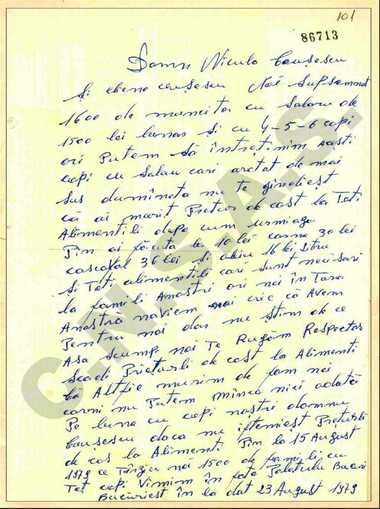 101
86713
Domn Niculo Ceuşescu
Şi elena ceuşescu Noi Supsemnat
1600 de muncitor cu Salaru de
1500 lei lunar Şi cu 4-5-6 copi
ori Putem Să întreţinim aceşti
copi cu Salau cari arătat de mai
Sus dumineta nu te gîndiest
că ai marit Preţur de cost la Toti
Alimentili după cum urmiaza
Pin ai făcuta la 10 lei carne 30 lei
cascaval 36 lei Şi uleiu 16 lei Litru
Şi Toti alimentili cari Sunt necisari
la familii Anoastri ori noi în Tara
Anostra naviem noi crie că Avem
Pentru noi dar nu Stim de ce
Aşa Scump noi Te Rugăm Respectos
Scadi Prieturli de cost la Alimenti
că Altfie murim de fom noi
carni nu Putem mînca nici odată
Pe luna cu copi nostri domnu
Ceuşescu daca nu ifteniest Preturli
de cos la Alimenti Pin la 15 August
1979 ce Tîrziu noi 1500 de familii cu
Tot copi Vinim în fata Palatului Bucur
Bucuriest în la dat 23 August 1979
C.N.S.A.S.